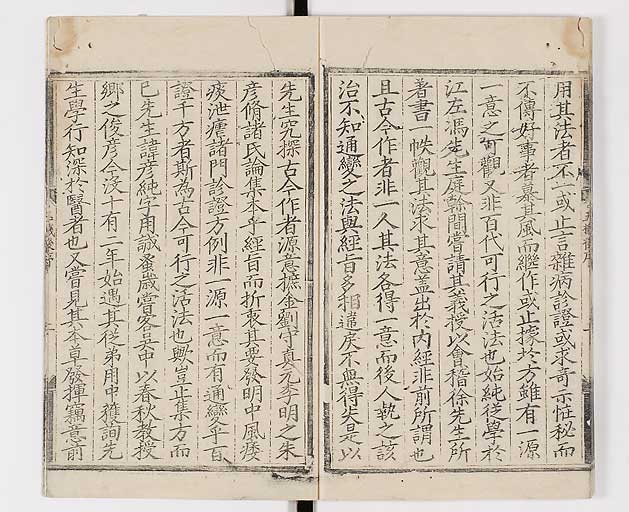 用其法者不一或止言雜病診證或求奇示怪秘而
不傳好事者慕其風而繼作或止據於方雖有一源
一意之可觀又非百代可行之活法也始純從學於
江左馮先生庭榦間嘗請其義授以會稽徐先生所
著書一帙觀其法求其意盖出於内經非前所謂也
且古今作者非一人其法各得一意而後人執之該
治不知通變之法與經旨多相違戾不無得失是以
先生究探古今作者源意摭金劉守真元李明之朱
彦脩諸氏論集本乎經旨而折衷其要發明中風痿
痰泄瘧諸門診證方例非一源一意而有通變乎百
證千方者斯為古今可行之活法也歟豈止集方而
已先生諱彦純字用誠蚤歲嘗客吳中以春秋教授
鄉之俊彦今没十有二年始遇其從弟用中獲詢先
生學行知深於醫者也又嘗見其本草發揮竊意前